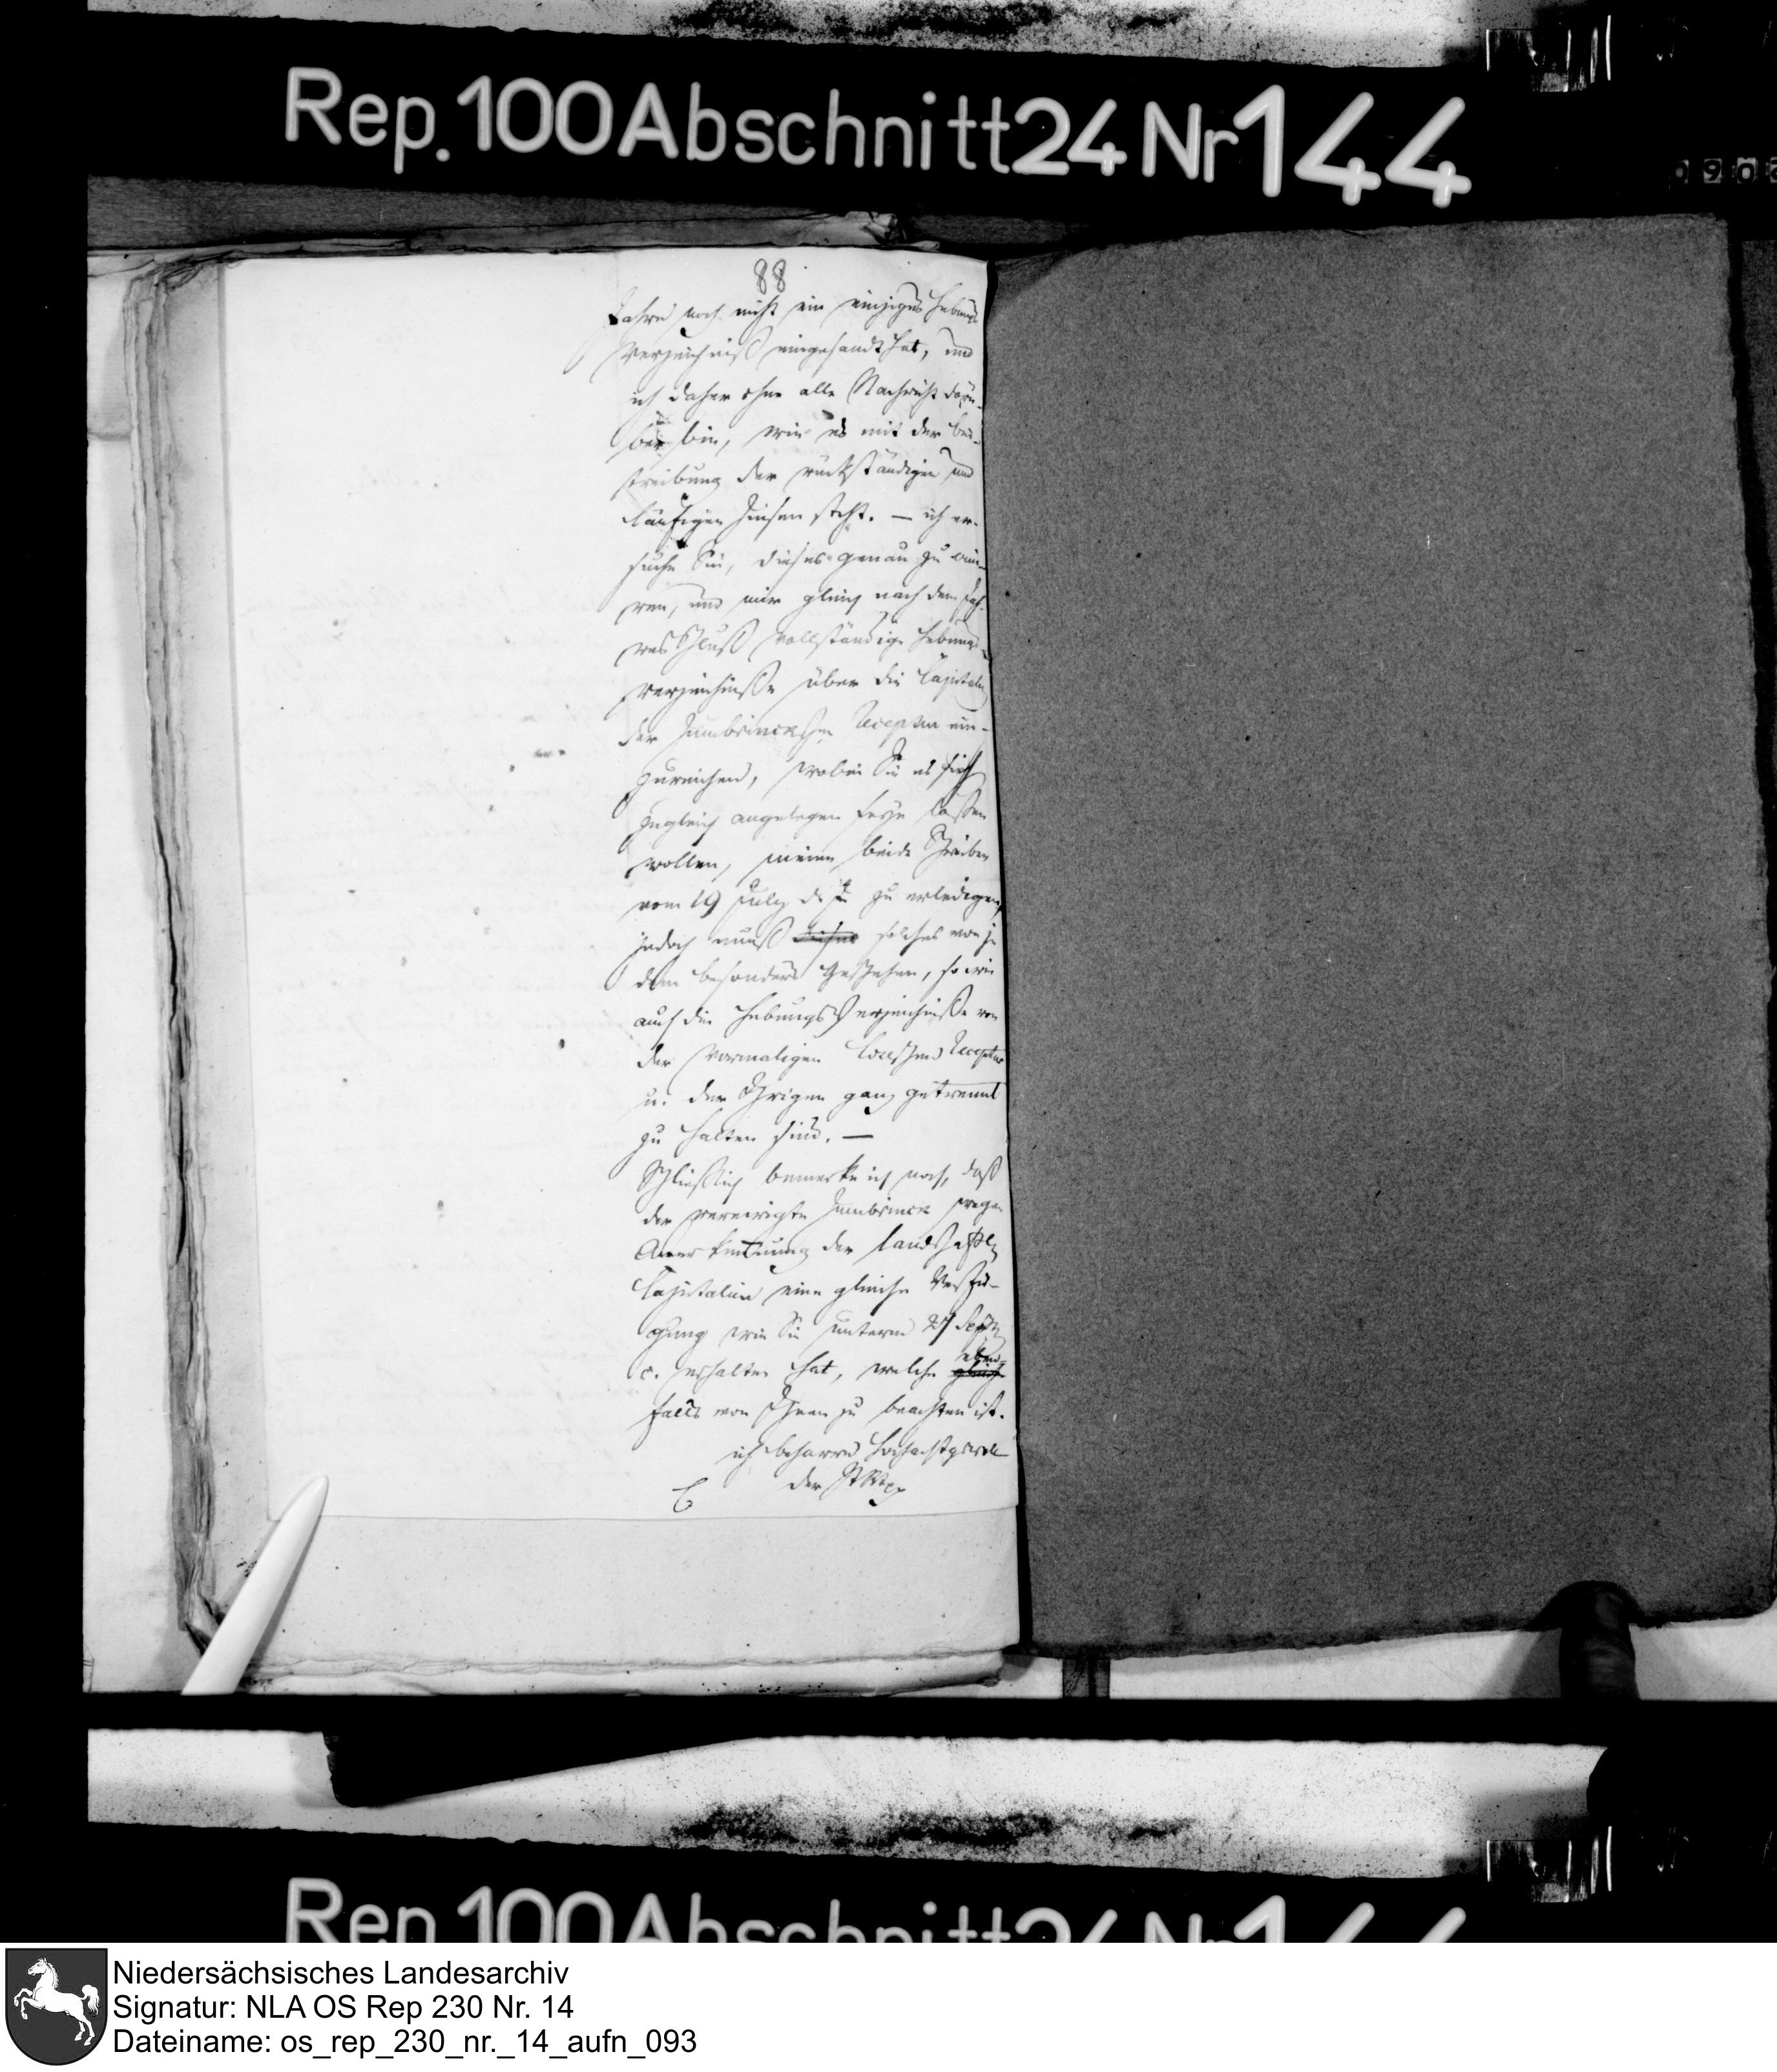 Rep. 100 Abschnitt 24 Nr 144
090
88
Jahre noch nicht ein einziges Hebungs
Verzeichniß eingesandt hat, und
ich daher ohne alle Nachricht darü-
ber bin, wie es mit der Bei-
treibung der rückständigen und
läufigen Zinsen steht. — ich er-
suche Sie, dieses genau zu
und mir gleich nach dem Jah-
resSchluß vollständige Hebungs-
verzeichniße über die Capitalien
der Receptur ein-
zureichen, wobei Sie es sich
zugleich angelegen seyn laßen
wollen, meine beide Schreiben
vom 19 July d. J. zu erledigen,
jedoch muß dieses solches von je
dem besonders geschehen, so wie
auch die HebungsVerzeichniße von
der vormaligen Receptur
u. der Ihrigen ganz getrennt
zu halten sind. —
Schließlich bemerke ich noch, daß
der verewigte wegen
Anerkennung der landschaftl.
Capitalien eine gleiche Verfü-
gung wie Sie unterm Septbr
c. erhalten hat, welche gleich eben-
falls von Ihnen zu beachten ist.
ich beharre hochachtungsvoll
der
Rep. 100 Abschnitt 24 Nr 144
Niedersächsisches Landesarchiv
Signatur: NLA OS Rep 230 Nr. 14
Dateiname: os_rep_230_nr._14_aufn_093